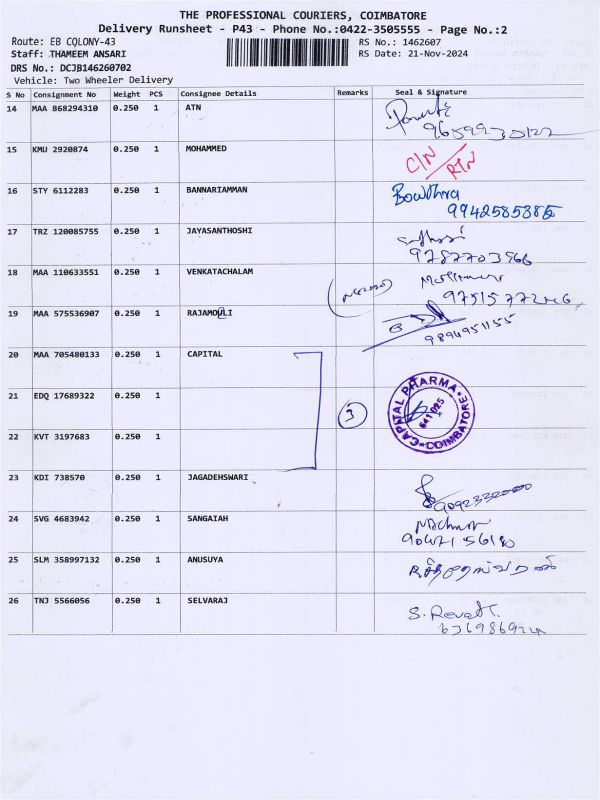 THE PROFESSIONAL COURIERS, COIMBATORE
Delivery Runsheet - P43 - Phone No.:0422-3505555 - Page No.:2
Route: EB COLONY-43 RS No.: 1462607
Staff: THAMEEM ANSARI RS Date: 21-Nov-2024
DRS No.: DCJB146260702
Vehicle: Two Wheeler Delivery
S No Consignment No Weight PCS Consignee Details Remarks Seal & Signature
14 MAA 868294310 0.250 1 ATN
15 KMU 2920874 0.250 1 MOHAMMED C/N RTN
16 STY 6112283 0.250 1 BANNARIAMMAN
9942585385
17 TRZ 120085755 0.250 1 JAYASANTHOSHI
9787703966
18 MAA 110633551 0.250 1 VENKATACHALAM
19 MAA 575536907 0.250 1 RAJAMOULI
9894951155
20 MAA 705480133 0.250 1 CAPITAL
21 EDQ 17689322 0.250 1 3 CAPITAL PHARMA COIMBATORE 641 025
22 KVT 3197683 0.250 1
23 KDI 738570 0.250 1 JAGADEHSWARI
24 SVG 4683942 0.250 1 SANGAIAH
25 SLM 358997132 0.250 1 ANUSUYA
26 TNJ 5566056 0.250 1 SELVARAJ S. Revathi